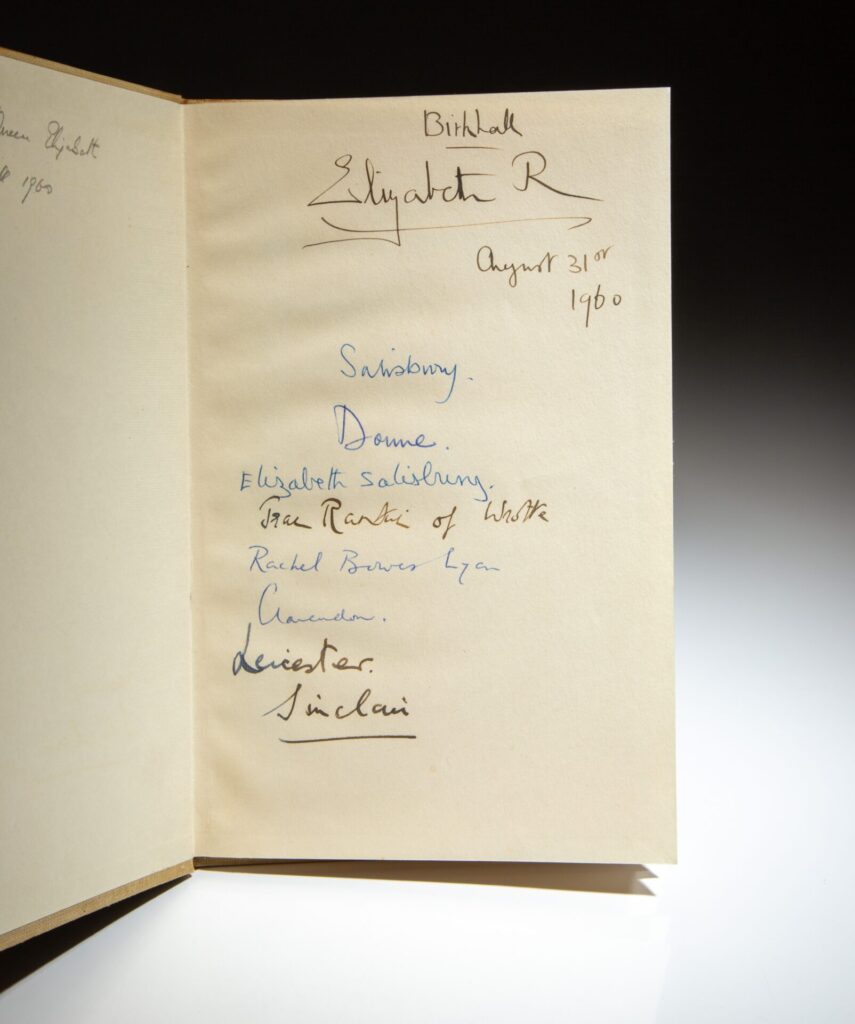 ueen Elizabeth
1960
Birkhall
Elizabeth R
August 31st
1960
Salisbury.
Doune.
Elizabeth Salisbury.
Jean Rankin of
Rachel Bowes Lyon
Clarendon.
Leicester.
Sinclair